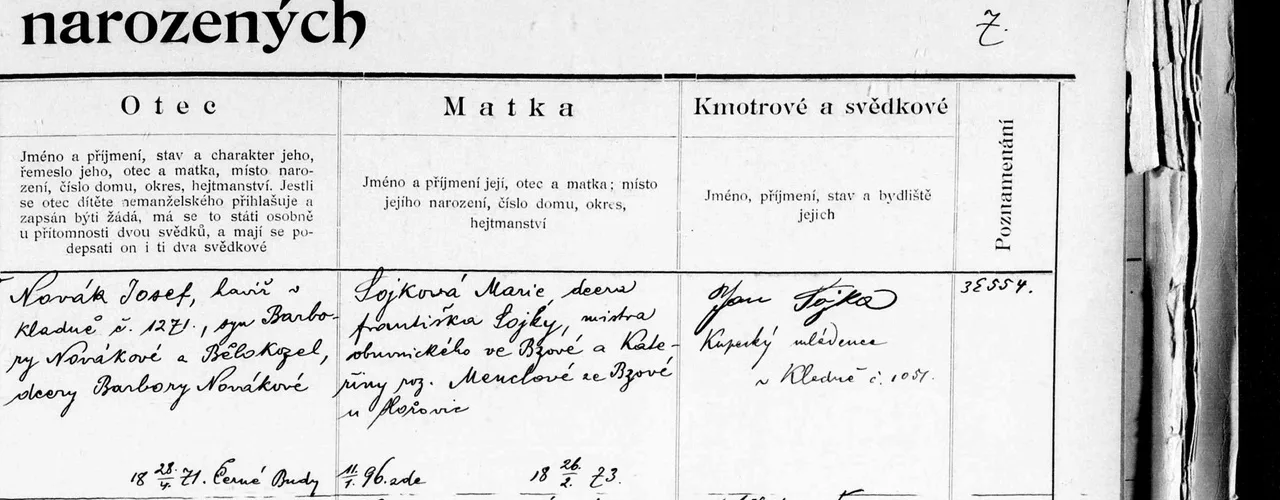 narozených
7.
Otec
Matka
Kmotrové a svědkové
Poznamenání
Jméno a příjmení, stav a charakter jeho,
řemeslo jeho, otec a matka, místo naro-
zení, číslo domu, okres, hejtmanství. Jestli
se otec dítěte nemanželského přihlašuje a
zapsán býti žádá, má se to státi osobně
u přítomnosti dvou svědků, a mají se po-
depsati on i ti dva svědkové
Jméno a příjmení její, otec a matka; místo
jejího narození, číslo domu, okres,
hejtmanství
Jméno, příjmení, stav a bydliště
jejich
Novák Josef, havíř v
Kladně č. 1271., syn Barbo-
ry Novákové a Bělokozel,
dcery Barbory Novákové
18 28./4. 71. Černé Budy
Sojková Marie, dcera
Františka Sojky, mistra
obuvnického ve Bzové a Kate-
řiny roz. Menclové ze Bzové
u Hořovic
11/1. 96. zde
18 26./2. 73.
Jan Sojka
Kupecký mládenec
v Kladně č. 1051.
3E554.